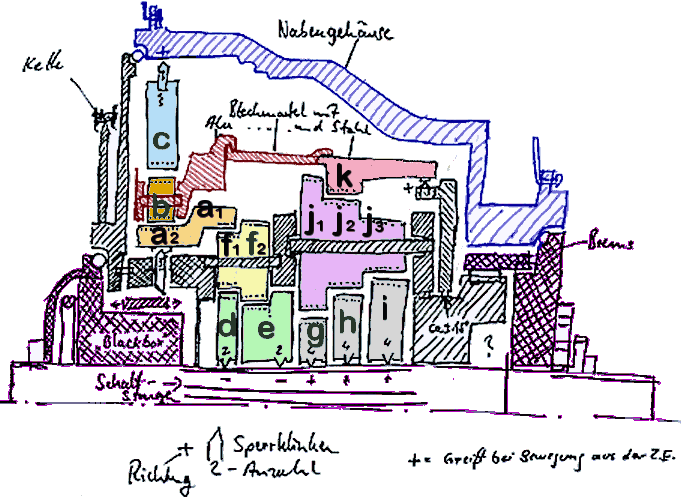 Nabengehäuse
Kette
Blechmantel mit
Alu ........ und Stahl
c
k
b
a₁
a₂
j₁ j₂ j₃
f₁ f₂
Brems
d e g h i
2 2 4 4 4
Blackbox
?
- - + + +
Schalt-
stange
+ Sperrklinken
Richtung 2-Anzahl
+ = Greift bei Bewegung aus der Z.E.